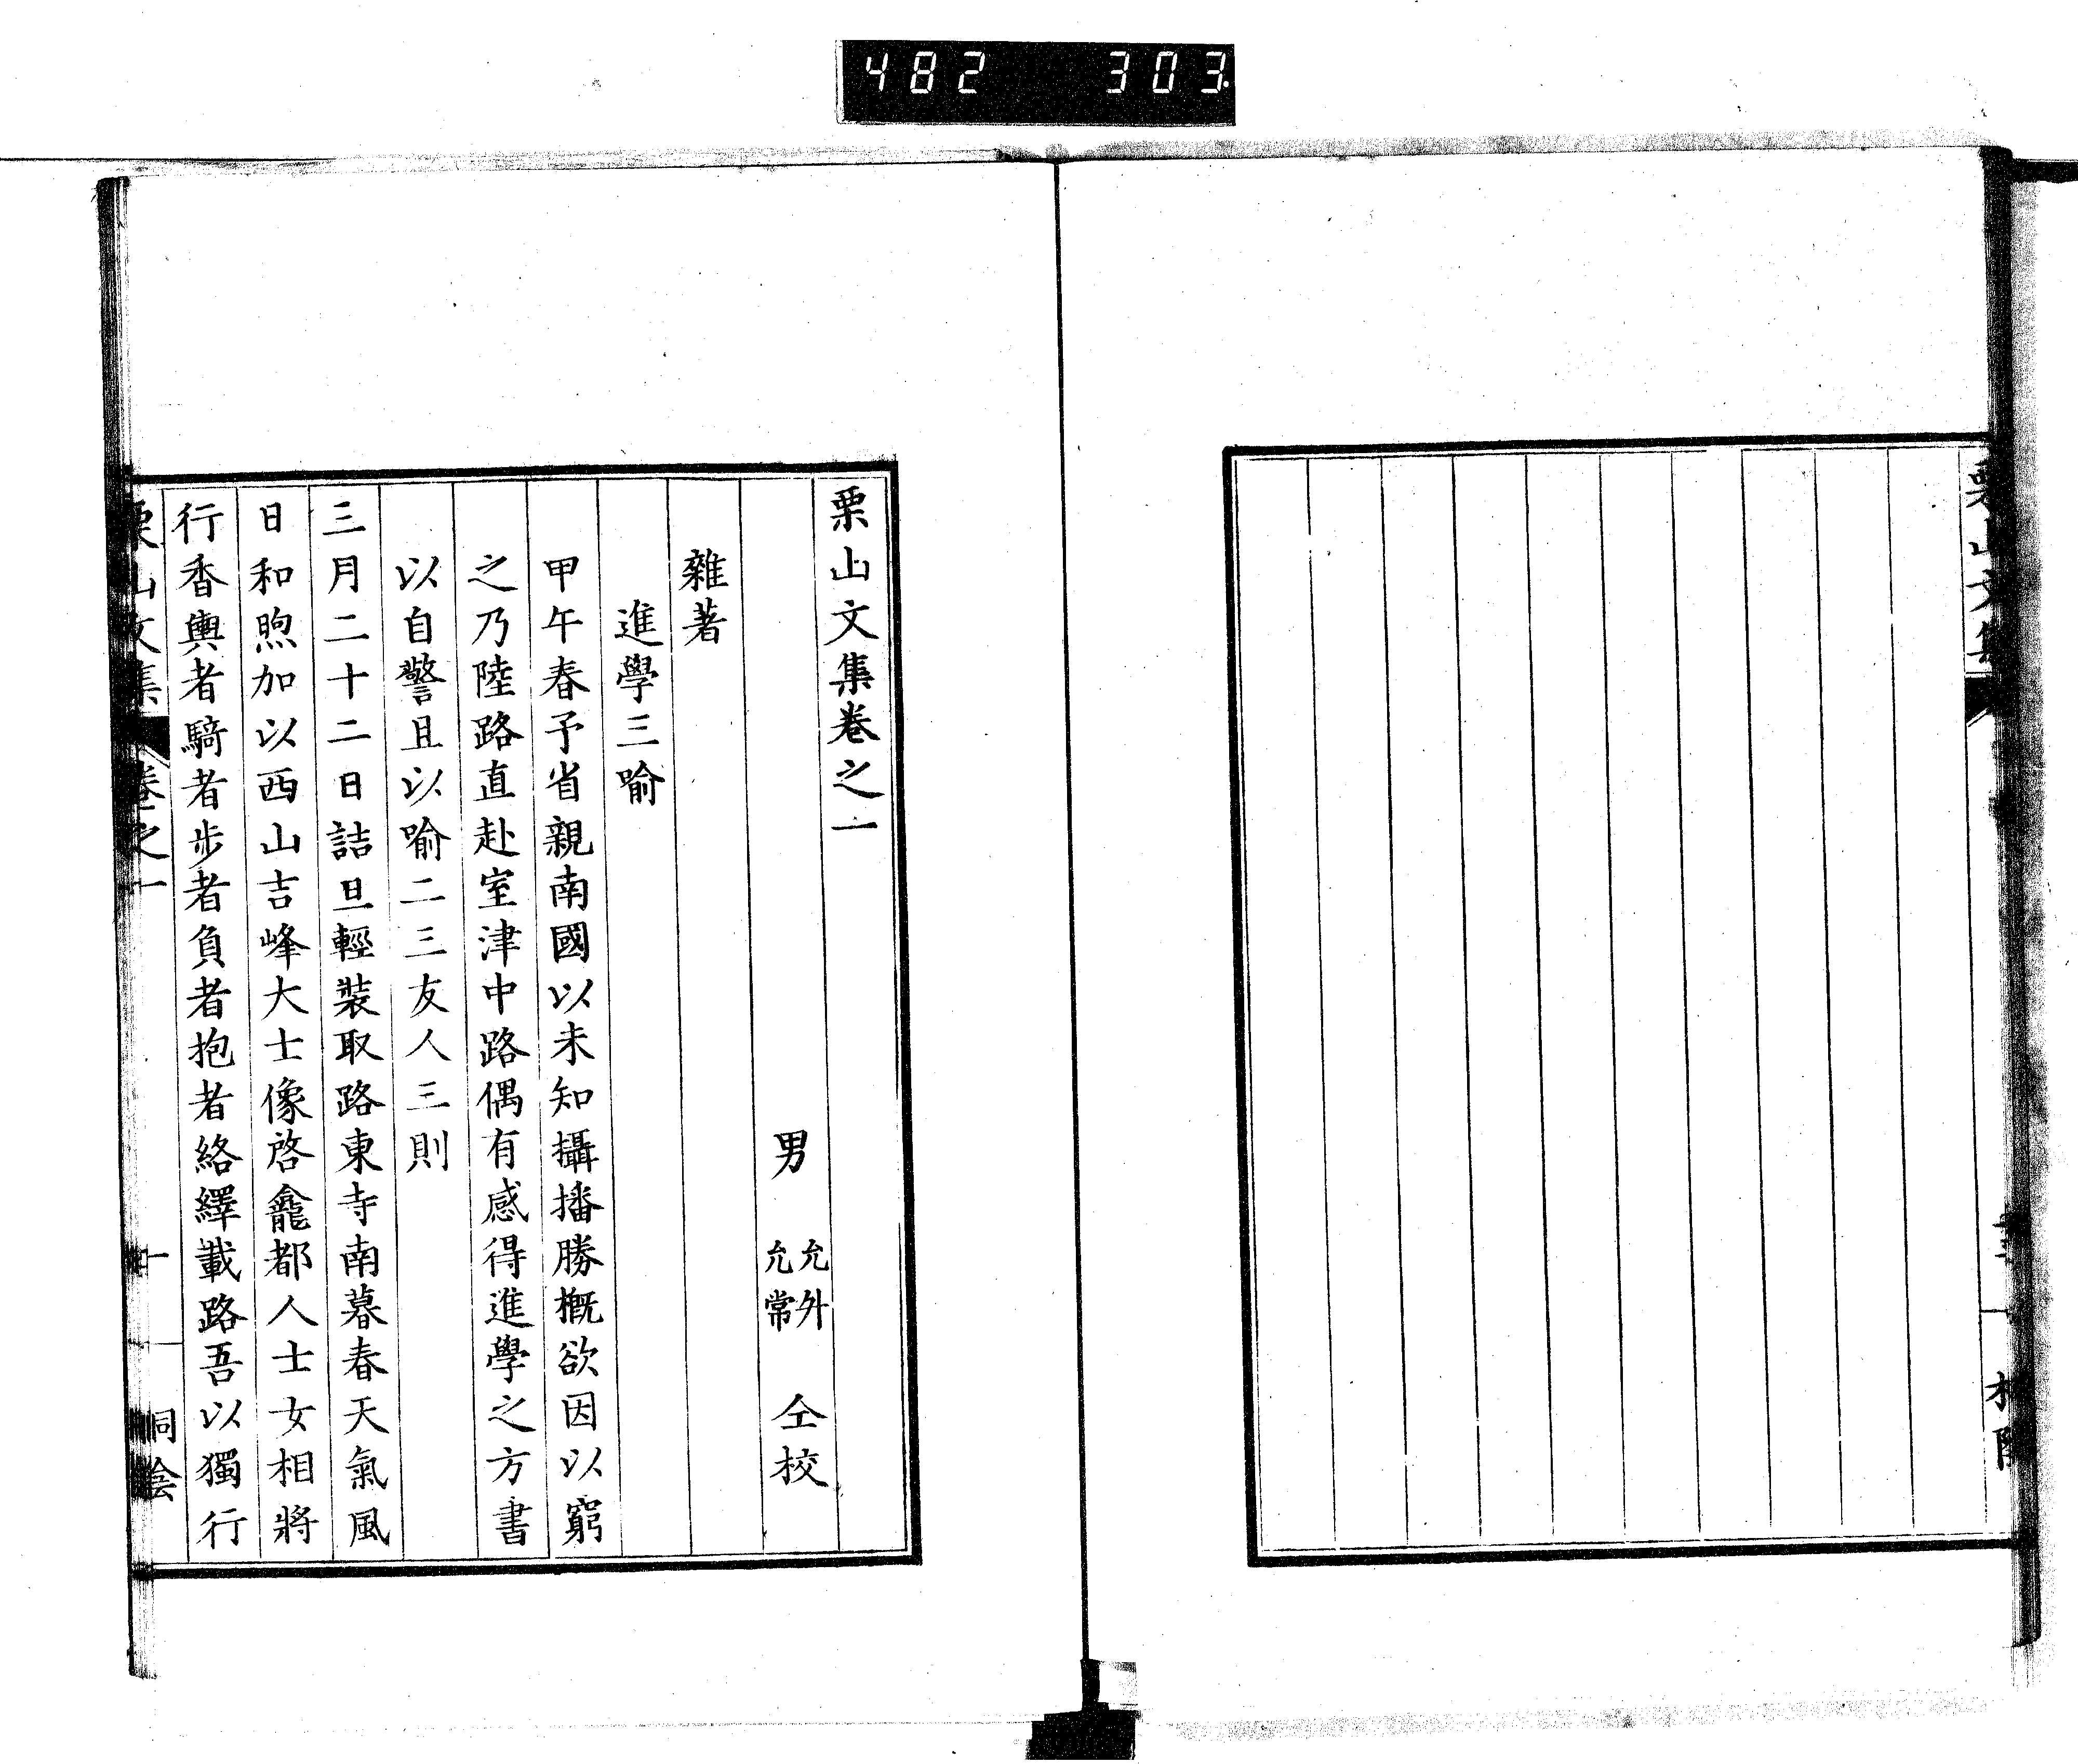 482 303
栗山文集
栗山文集卷之一
男 允外 允常 仝校
雜著
進學三喻
甲午春予省親南國以未知攝播勝概欲因以窮
之乃陸路直赴室津中路偶有感得進學之方書
以自警且以喻二三友人三則
三月二十二日詰旦輕裝取路東寺南暮春天氣風
日和煦加以西山吉峰大士像啓龕都人士女相將
行香輿者騎者步者負者抱者絡繹載路吾以獨行
栗山文集 卷之一 一 桐陰